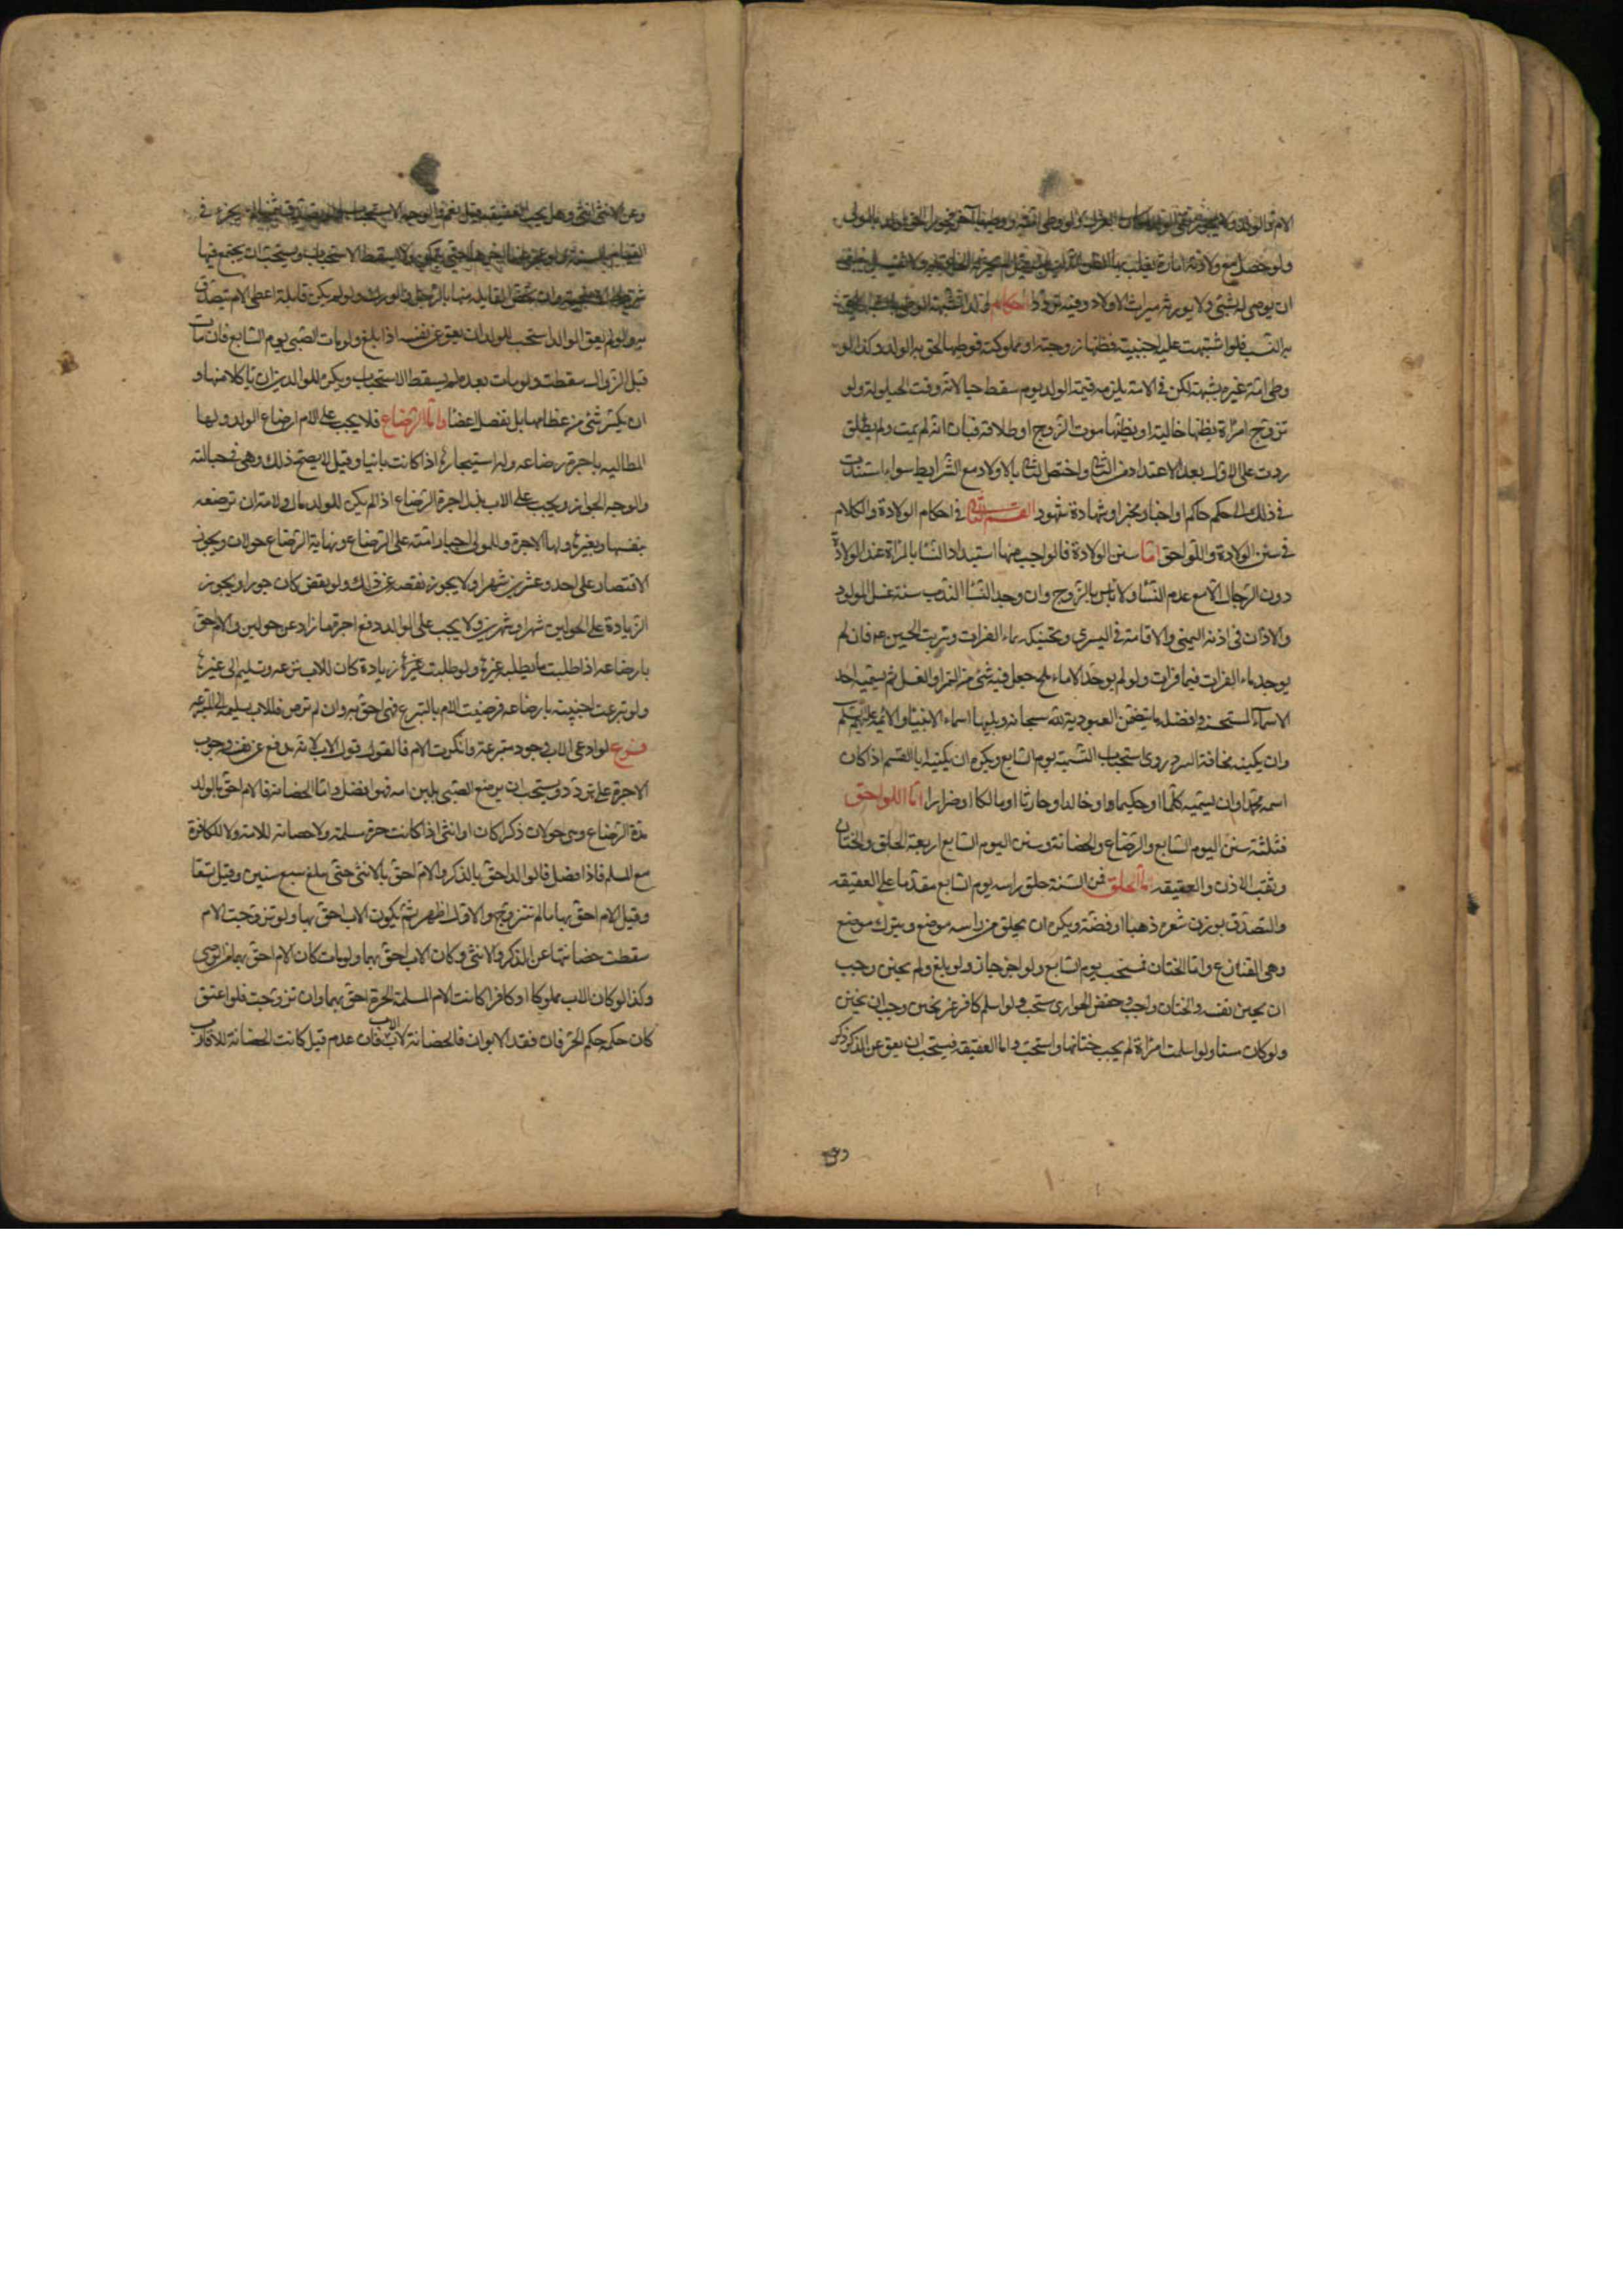 الامة الولد ولا يجوز نفى الولد لمكان العزل ولو وطى امته ووطيها آخر فجورا الحق الولد بالمولى
ولو حصل مع ولادته امارة يغلب بها الظن
ان يوصى له بشئ ولا يورثه ميراث الاولاد وفيه تردد احكام ولد الشبهة الوطى بالشبهة يلحق
به النسب فلو اشتبهت عليه اجنبية فظنها زوجته او مملوكته فوطيها لحق به الولد وكذا لو
وطى امة غيره بشبهة لكن فى الامة يلزمه قيمة الولد يوم سقط حيا لانه وقت الحيلولة ولو
تزوج امراة يظنها خالية او يظنها موت الزوج او طلاقه فبان انه لم يمت ولم يطلق
ردت على الاول بعد الاعتداد من الثانى واختص الثانى بالاولاد مع الشرايط سواء استندت
فى ذلك الى حكم حاكم او اخبار مخبر او شهادة شهود القسم الثانى فى احكام الولادة والكلام
فى سنن الولادة واللواحق اما سنن الولادة فالواجب منها استبداد النسا بالمراة عند الولادة
دون الرجال الا مع عدم النسا ولا باس بالزوج وان وجد النسا الندب ستة غسل المولود
والاذان فى اذنه اليمنى والاقامة فى اليسرى وتحنيكه بماء الفرات وتربت الحسين ع م فان لم
يوجد ماء الفرات فبماء فرات ولو لم يوجد الا ماء ملح جعل فيه شئ من التمر او العسل ثم يسميه احد
الاسماء المستحسنة وافضله ما يتضمن العبودية لله سبحانه ويليها اسماء الانبيا والائمة عليهم السلم
وان يكنيه مخافة النبز وروى استحباب التسمية يوم السابع ويكره ان يكنيه ابا القسم اذا كان
اسمه محمدا وان يسميه حكما او حكيما او خالدا او حارثا او مالكا او ضرارا اما اللواحق
فثلثة سنن اليوم السابع والرضاع والحضانة وسنن اليوم السابع اربعة الحلق والختان
وثقب الاذن والعقيقه اما الحلق فمن السنة حلق راسه يوم السابع مقدما على العقيقه
والتصدق بوزن شعره ذهبا او فضة ويكره ان يحلق من راسه موضع ويترك موضع
وهى القنازع واما الختان فمستحب يوم السابع ولو اخر جاز ولو بلغ ولم يختن وجب
ان يختن نفسه والختان واجب وخفض الجوارى مستحب ولو اسلم كافر غير مختن وجب ان يختن
ولو كان مسنا ولو اسلمت امراة لم يجب ختانها واستحب واما العقيقه فيستحب ان يعق عن الذكر ذكر
وعن
وعن الانثى انثى وهل يجب العقيقة قيل نعم والوجه الاستحباب ولو تصدق بثمنها لم يجزء فى
القيام بالسنة ولو عجز عنها اخرها حتى يتمكن ولا يسقط الاستحباب ويستحب ان يجتمع فيها
شروط الاضحية وان يخص القابلة منها بالرجل والورك ولو لم يكن قابلة اعطى الام تتصدق
به ولو لم يعق الوالد استحب للولد ان يعق عن نفسه اذا بلغ ولو مات الصبى يوم السابع فان مات
قبل الزوال سقطت ولو مات بعده لم يسقط الاستحباب ويكره للوالدين ان ياكلا منها و
ان يكسر شئ من عظامها بل تفصل اعضا واما الرضاع فلا يجب على الام ارضاع الولد ولها
المطالبة باجرة رضاعه وله استيجارها اذا كانت باينا وقيل لا يصح ذلك وهى فى حبالته
والوجه الجواز ويجب على الاب بذل اجرة الرضاع اذا لم يكن للولد مال ولامه ان ترضعه
بنفسها وبغيرها ولها الاجرة وللمولى اجبار امته على الرضاع ونهاية الرضاع حولان ويجوز
الاقتصار على احد وعشرين شهرا ولا يجوز نقصه عن ذلك ولو نقص كان جورا ويجوز
الزيادة على الحولين شهرا وشهرين ولا يجب على الوالد دفع اجرة ما زاد عن حولين والام احق
بارضاعه اذا طلبت ما يطلبه غيرها ولو طلبت غيرها زيادة كان للاب نزعه وتسليمه الى غيرها
ولو تبرعت اجنبيته بارضاعه فرضيت الام بالتبرع فهى احق به وان لم ترض فللاب تسليمه الى المتبرعه
فرع لو ادعى الاب وجود متبرعة وانكرت الام فالقول قول الاب لانه يدفع عن نفسه وجوب
الاجرة على تردد ويستحب ان يرضع الصبى بلبن امه فهو افضل واما الحضانة فالام احق بالولد
مدة الرضاع وهى حولان ذكرا كان او انثى اذا كانت حرة مسلمة ولا حضانة للامة ولا للكافرة
مع المسلم فاذا فصل فالوالد احق بالذكر والام احق بالانثى حتى تبلغ سبع سنين وقيل تسعا
وقيل الام احق بها ما لم تتزوج والاول اظهر ثم يكون الاب احق بها ولو تزوجت الام
سقطت حضانتها عن الذكر والانثى وكان الاب احق بهما ولو مات كان الام احق بهما من الوصى
وكذا لو كان الاب مملوكا او كافرا كانت الام المسلمة الحرة احق بهما وان تزوجت فلو اعتق
كان حكمه حكم الحر فان فقد الابوان فالحضانة لاب الاب فان عدم قيل كانت الحضانة للاقارب